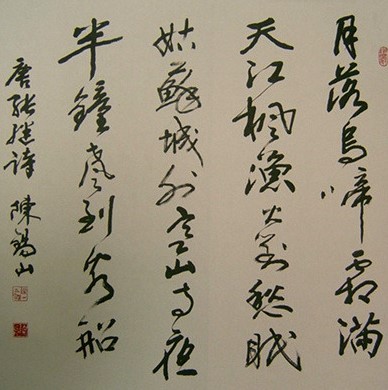 月落烏啼霜滿
天江楓漁火對愁眠
姑蘇城外寒山寺夜
半鐘聲到客船
唐張繼詩 陳錫山